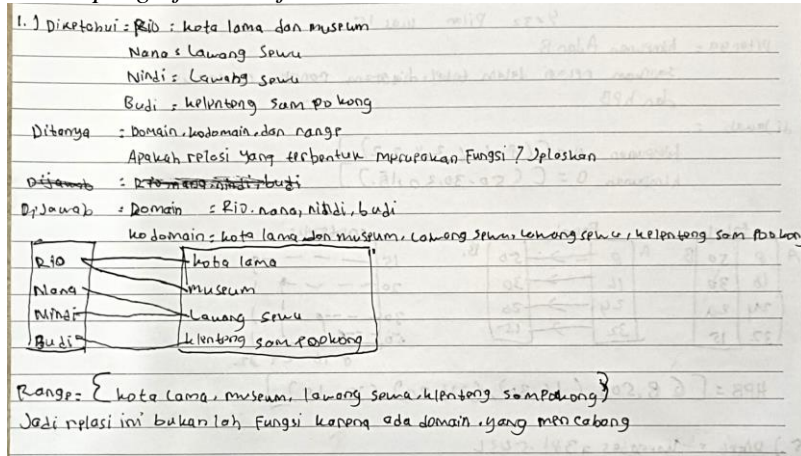 1.) Diketahui : Rio : kota lama dan museum
Nana : Lawang Sewu
Nindi : Lawang Sewu
Budi : kelenteng Sam po kong
Ditanya : Domain, kodomain, dan range
Apakah relasi yang terbentuk merupakan Fungsi ? Jelaskan
Dijawab : Rio nana, nindi, budi
Dijawab : Domain : Rio, nana, nindi, budi
kodomain : kota lama dan museum, lawang sewu, lawang sewu, kelenteng sam pookong
Rio kota lama
Nana museum
Nindi Lawang sewu
Budi klenteng sam pookong
Range = { kota lama, museum, lawang sewu, klenteng sam pookong }
Jadi relasi ini bukan lah Fungsi karena ada domain yang mencabang